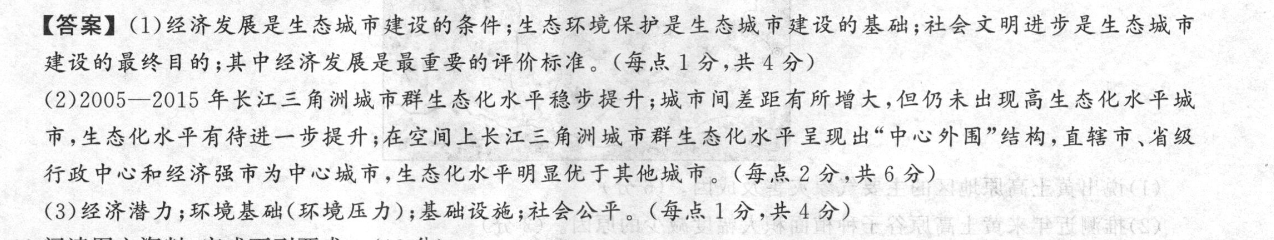 【答案】(1)经济发展是生态城市建设的条件;生态环境保护是生态城市建设的基础;社会文明进步是生态城市
建设的最终目的;其中经济发展是最重要的评价标准。(每点1分,共4分)
(2)2005—2015年长江三角洲城市群生态化水平稳步提升;城市间差距有所增大,但仍未出现高生态化水平城
市,生态化水平有待进一步提升;在空间上长江三角洲城市群生态化水平呈现出“中心外围”结构,直辖市、省级
行政中心和经济强市为中心城市,生态化水平明显优于其他城市。(每点2分,共6分)
(3)经济潜力;环境基础(环境压力);基础设施;社会公平。(每点1分,共4分)